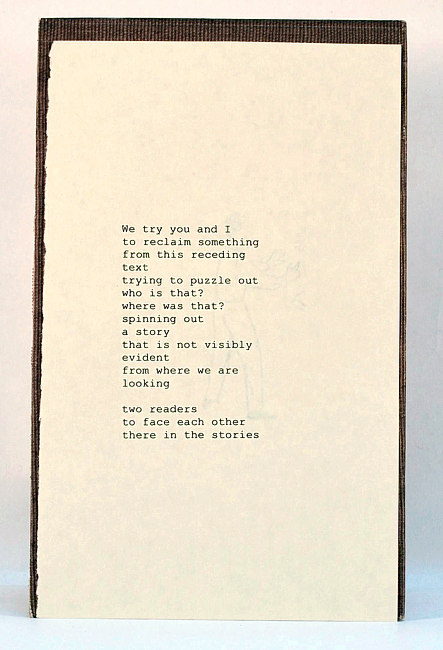 We try you and I
to reclaim something
from this receding
text
trying to puzzle out
who is that?
where was that?
spinning out
a story
that is not visibly
evident
from where we are
looking
two readers
to face each other
there in the stories